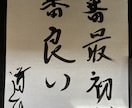 番最初
番良い